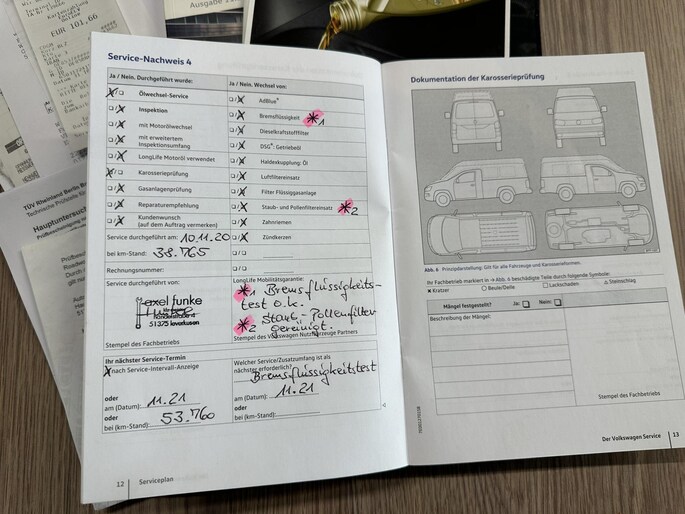 EUR 101,66
Ausgabe
TÜV Rheinland Berlin
Technische Prüfstelle
Hauptuntersuchung
Service-Nachweis 4
Ja / Nein. Durchgeführt wurde:
Ölwechsel-Service
Inspektion
mit Motorölwechsel
mit erweitertem
Inspektionsumfang
LongLife Motoröl verwendet
Karosserieprüfung
Gasanlagenprüfung
Reparaturempfehlung
Kundenwunsch
(auf dem Auftrag vermerken)
Service durchgeführt am: 10.11.20
bei km-Stand: 38.765
Rechnungsnummer:
Service durchgeführt von:
exel funke
51375 leverkusen
Stempel des Fachbetriebs
Ja / Nein. Wechsel von:
AdBlue®
Bremsflüssigkeit *1
Dieselkraftstofffilter
DSG®: Getriebeöl
Haldexkupplung: Öl
Luftfiltereinsatz
Filter Flüssiggasanlage
Staub- und Pollenfiltereinsatz *2
Zahnriemen
Zündkerzen
LongLife Mobilitätsgarantie:
*1 Bremsflüssigkeits-
test o.k.
*2 Staub-Pollenfilter
gereinigt.
Stempel des Volkswagen Nutzfahrzeuge Partners
Ihr nächster Service-Termin
nach Service-Intervall-Anzeige
oder
am (Datum): 11.21
oder
bei (km-Stand): 53.760
Welcher Service/Zusatzumfang ist als
nächster erforderlich?
Bremsflüssigkeitstest
am (Datum): 11.21
bei (km-Stand):
12 Serviceplan
Dokumentation der Karosserieprüfung
Abb. 6 Prinzipdarstellung: Gilt für alle Fahrzeuge und Karosserieformen.
Ihr Fachbetrieb markiert in → Abb. 6 beschädigte Teile durch folgende Symbole:
× Kratzer ○ Beule/Delle □ Lackschaden △ Steinschlag
Mängel festgestellt? Ja: Nein:
Beschreibung der Mängel:
Stempel des Fachbetriebs
Der Volkswagen Service 13